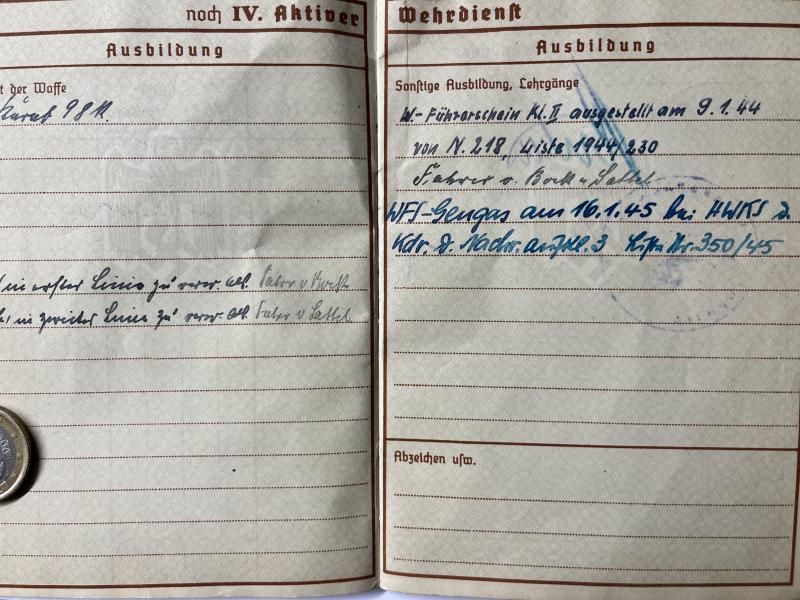 noch IV. Aktiver
Ausbildung
t der Waffe
Karab 98 K.
in erster Linie zu verw. als Fahrer v Bock
in zweiter Linie zu verw. als Fahrer v Sattel
Wehrdienst
Ausbildung
Sonstige Ausbildung, Lehrgänge
W-Führerschein Kl. II ausgestellt am 9.1.44
von N. 218, Liste 1944/230
Fahrer v. Bock u. Sattel
WFS-Gengas am 16.1.45 bei HWKS d.
Kdr. d. Nachr. aufkl. 3 Liste Nr. 350/45
Abzeichen usw.